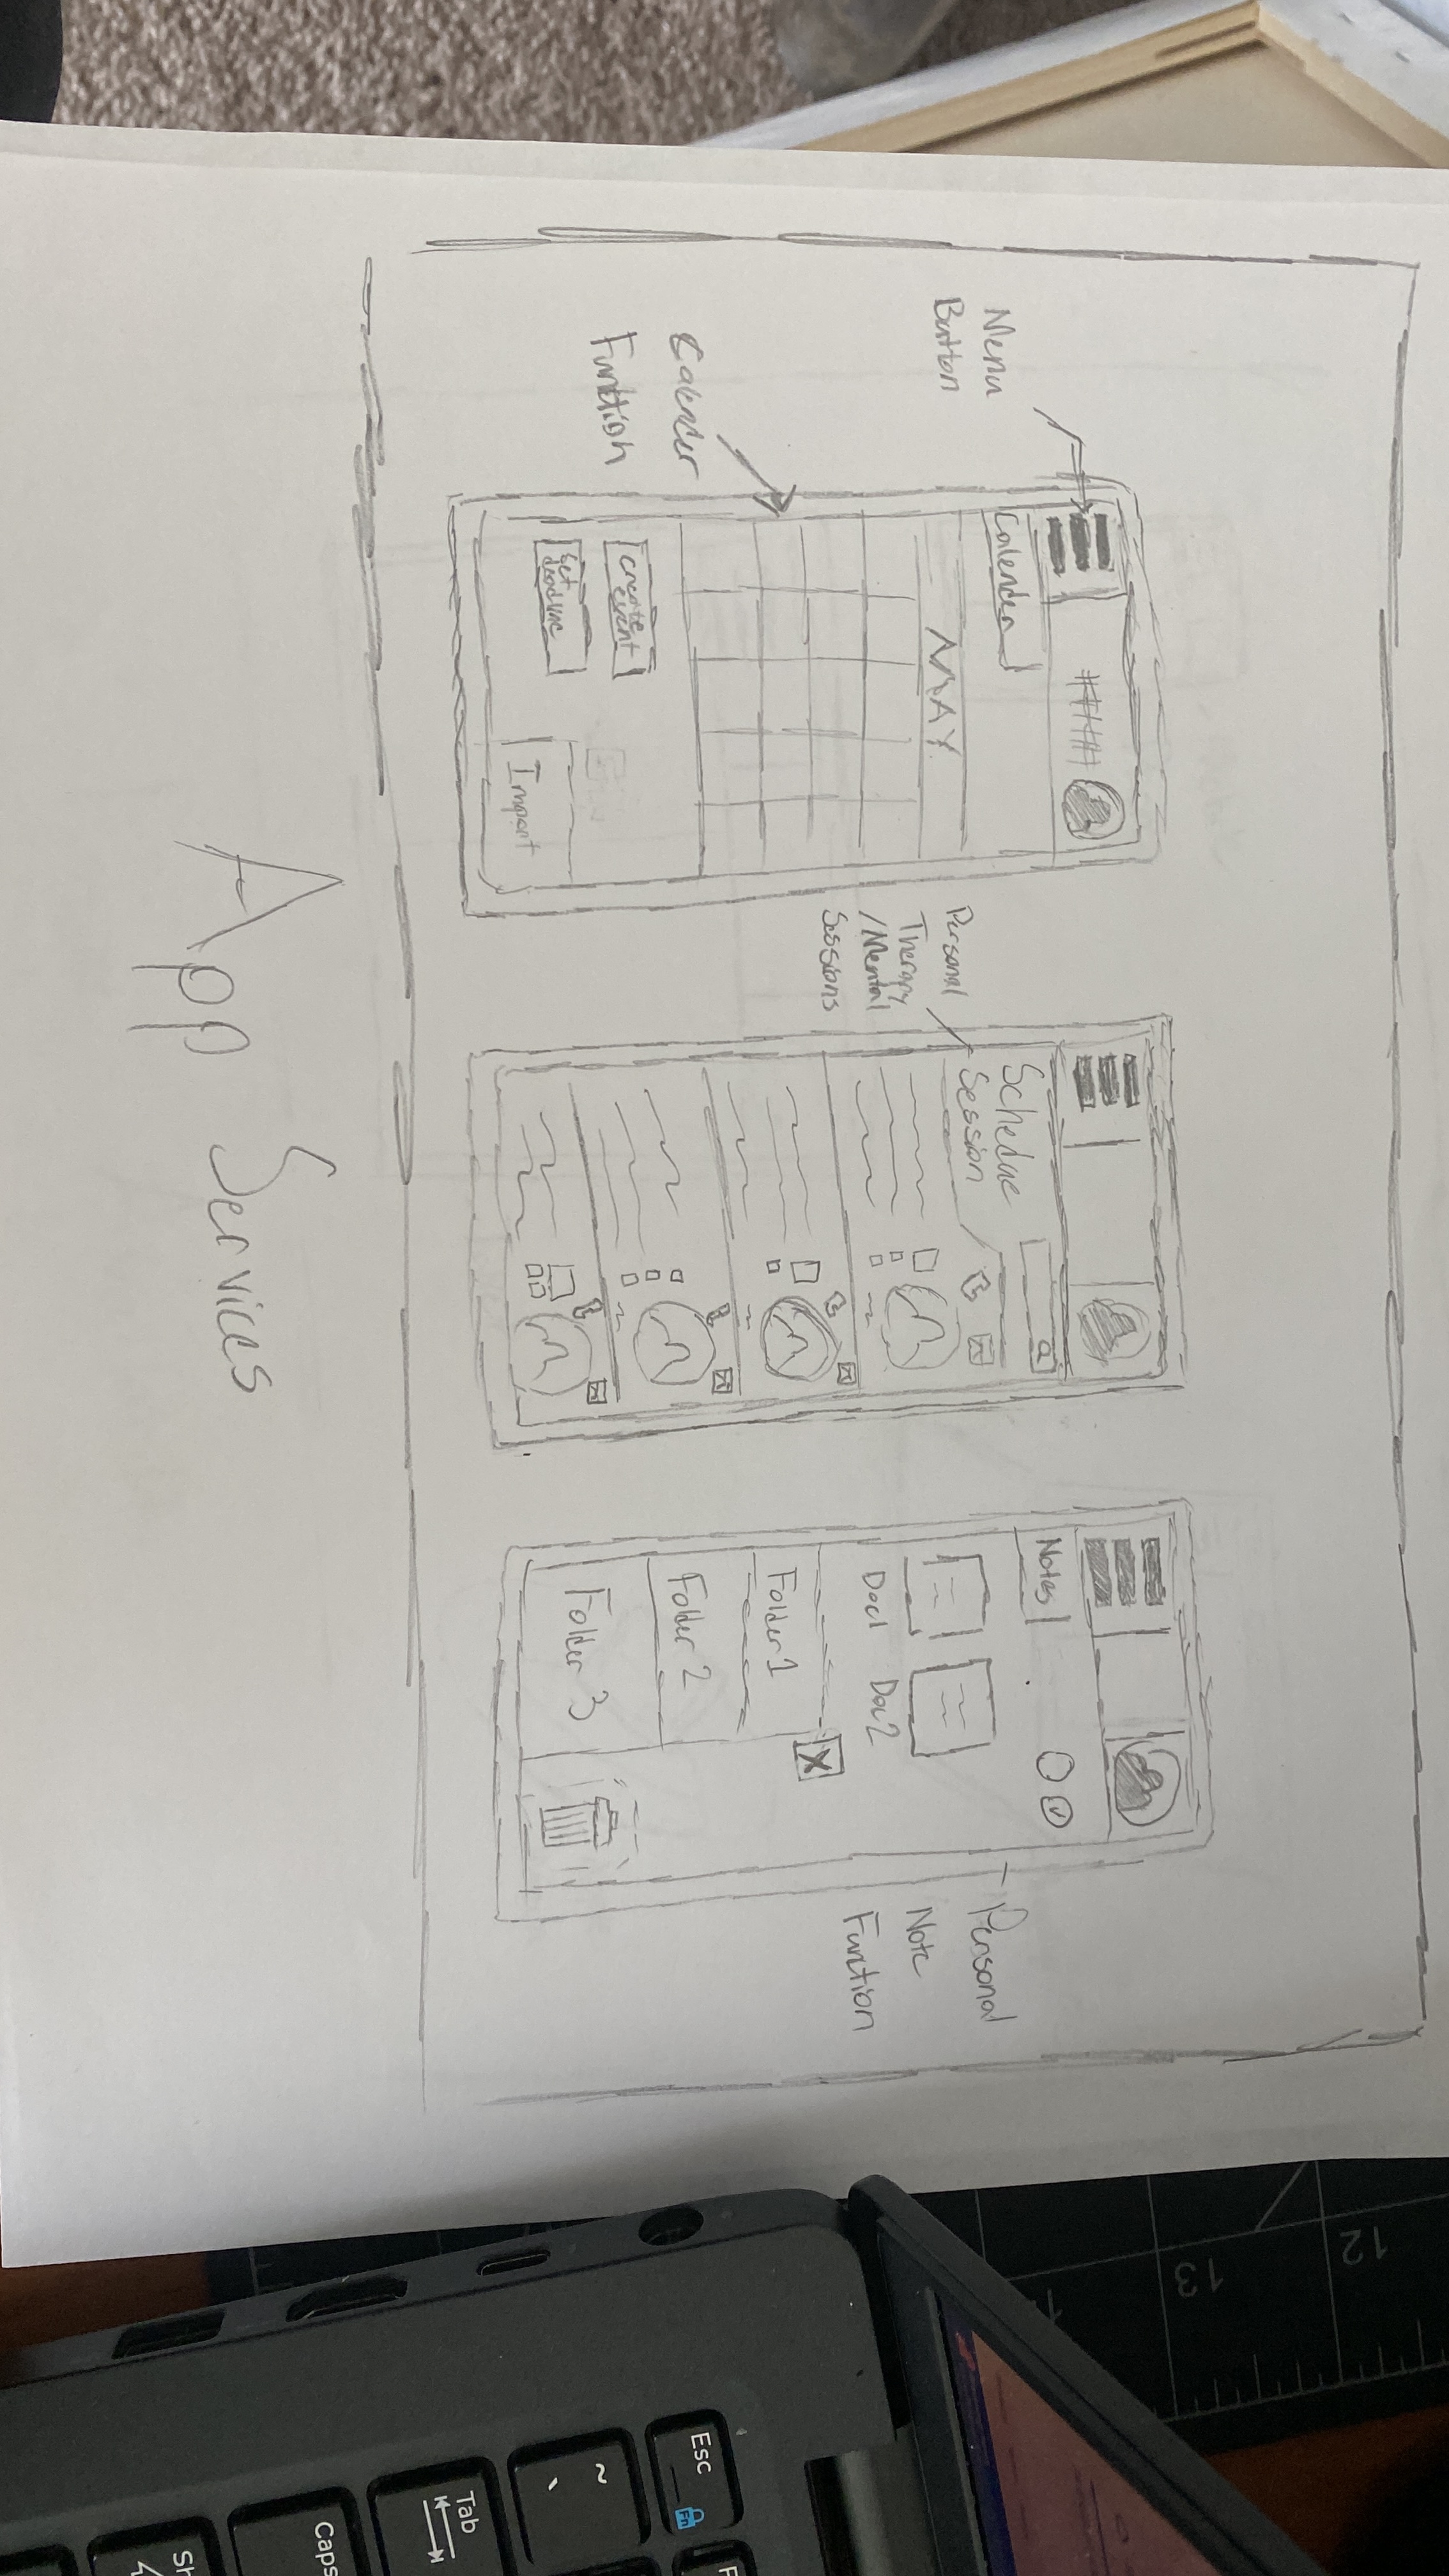 Menu
Button
Calender
Function
Calender
MAY
Create
event
Set
deadline
Import
Personal
Therapy
/Mental
Sessions
Schedue
Session
Notes
Doc1 Doc2
X
Folder 1
Folder 2
Folder 3
Personal
Note
Function
App Services
12
13
Esc
Fn
~
`
Tab
Caps
Sh
F